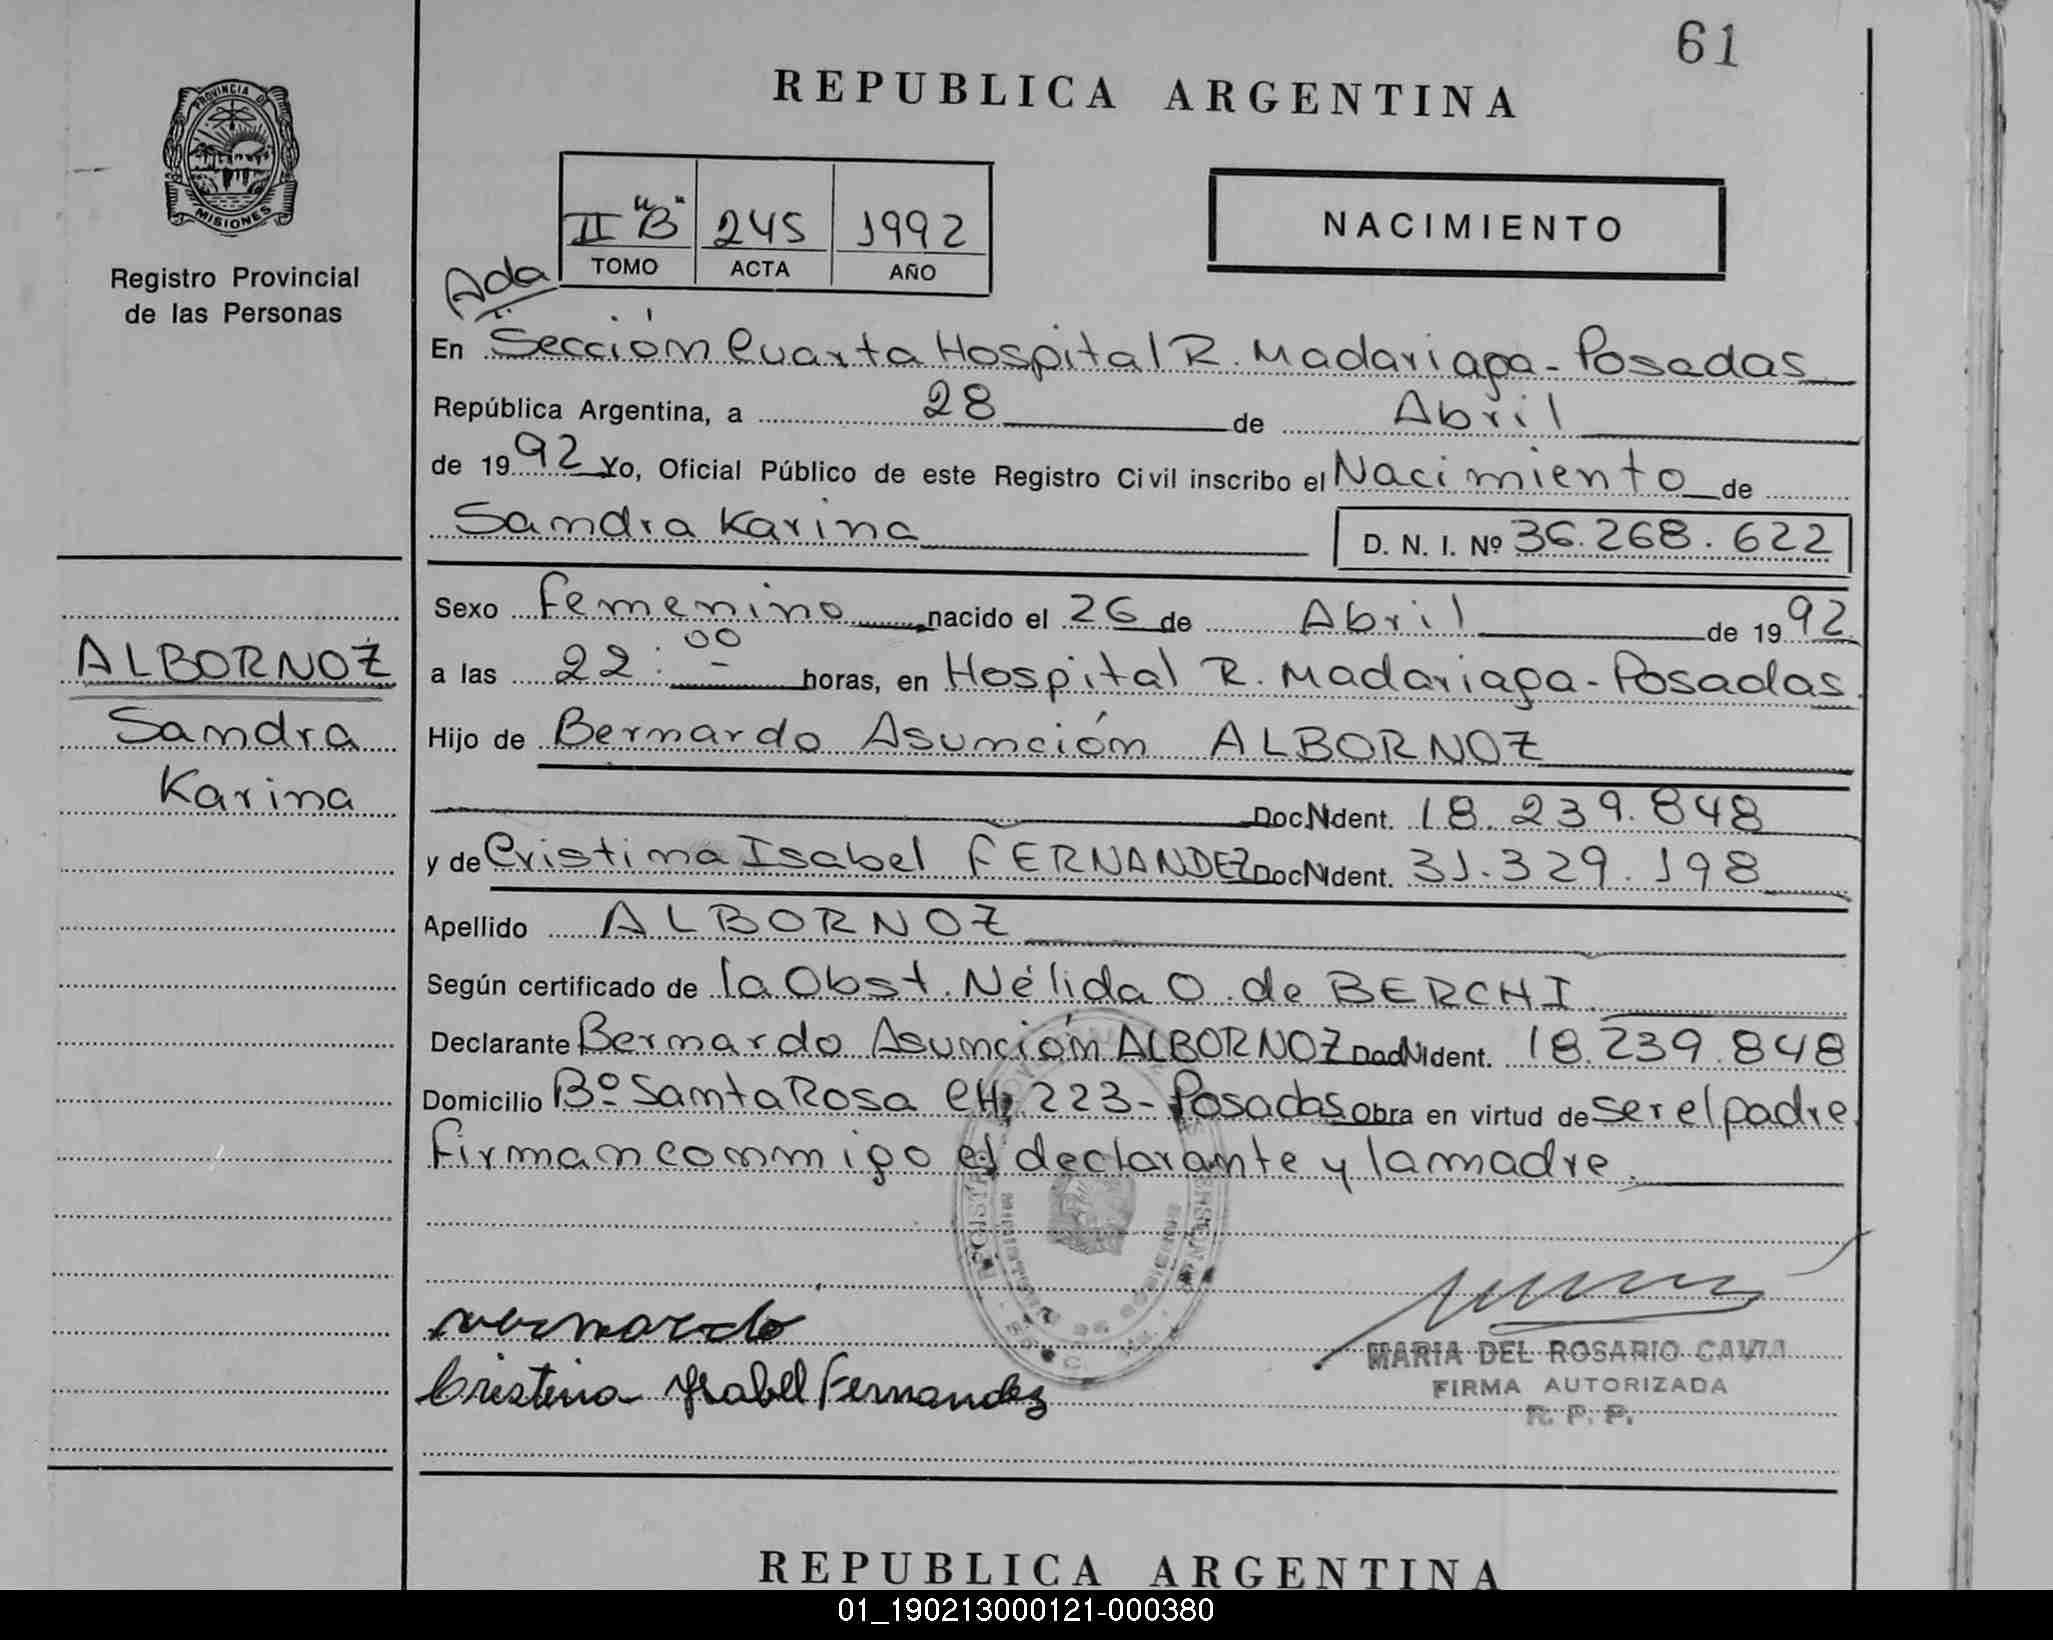 61
REPUBLICA ARGENTINA
PROVINCIA DE
MISIONES
Registro Provincial
de las Personas
II "B" 245 1992
TOMO ACTA AÑO
NACIMIENTO
Ada
En Sección Cuarta Hospital R. Madariaga - Posadas
República Argentina, a 28 de Abril
de 1992 Yo, Oficial Público de este Registro Civil inscribo el Nacimiento de
Sandra Karina D. N. I. Nº 36.268.622
Sexo Femenino nacido el 26 de Abril de 1992
a las 22:00 horas, en Hospital R. Madariaga - Posadas.
Hijo de Bernardo Asunción ALBORNOZ
Doc. Ident. 18.239.848
y de Cristina Isabel FERNANDEZ Doc. Ident. 31.329.198
Apellido ALBORNOZ
Según certificado de la Obst. Nélida O. de BERCHI
Declarante Bernardo Asunción ALBORNOZ Doc. Ident. 18.239.848
Domicilio Bº Santa Rosa CH. 223 - Posadas Obra en virtud de ser el padre
firman conmigo el declarante y la madre.
ALBORNOZ
Sandra
Karina
vernardo
Cristina Ysabel Fernandez
MARIA DEL ROSARIO
FIRMA AUTORIZADA
R. P. P.
REPUBLICA ARGENTINA
01_190213000121-000380